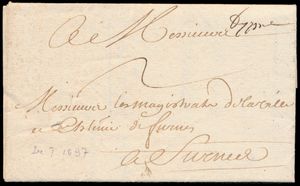 A Messieurs
Messieurs Les magistrats de la ville
et Chstnie de furnes
a Furnes
1697